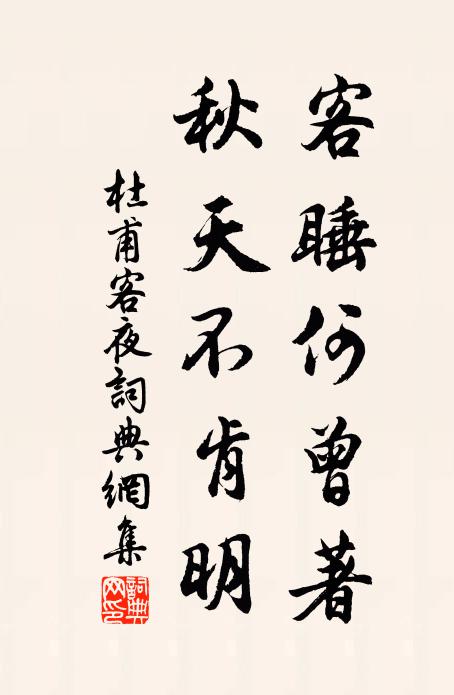 客睡何曾著
秋天不肯明
杜甫客夜詞典網集
詞典网印